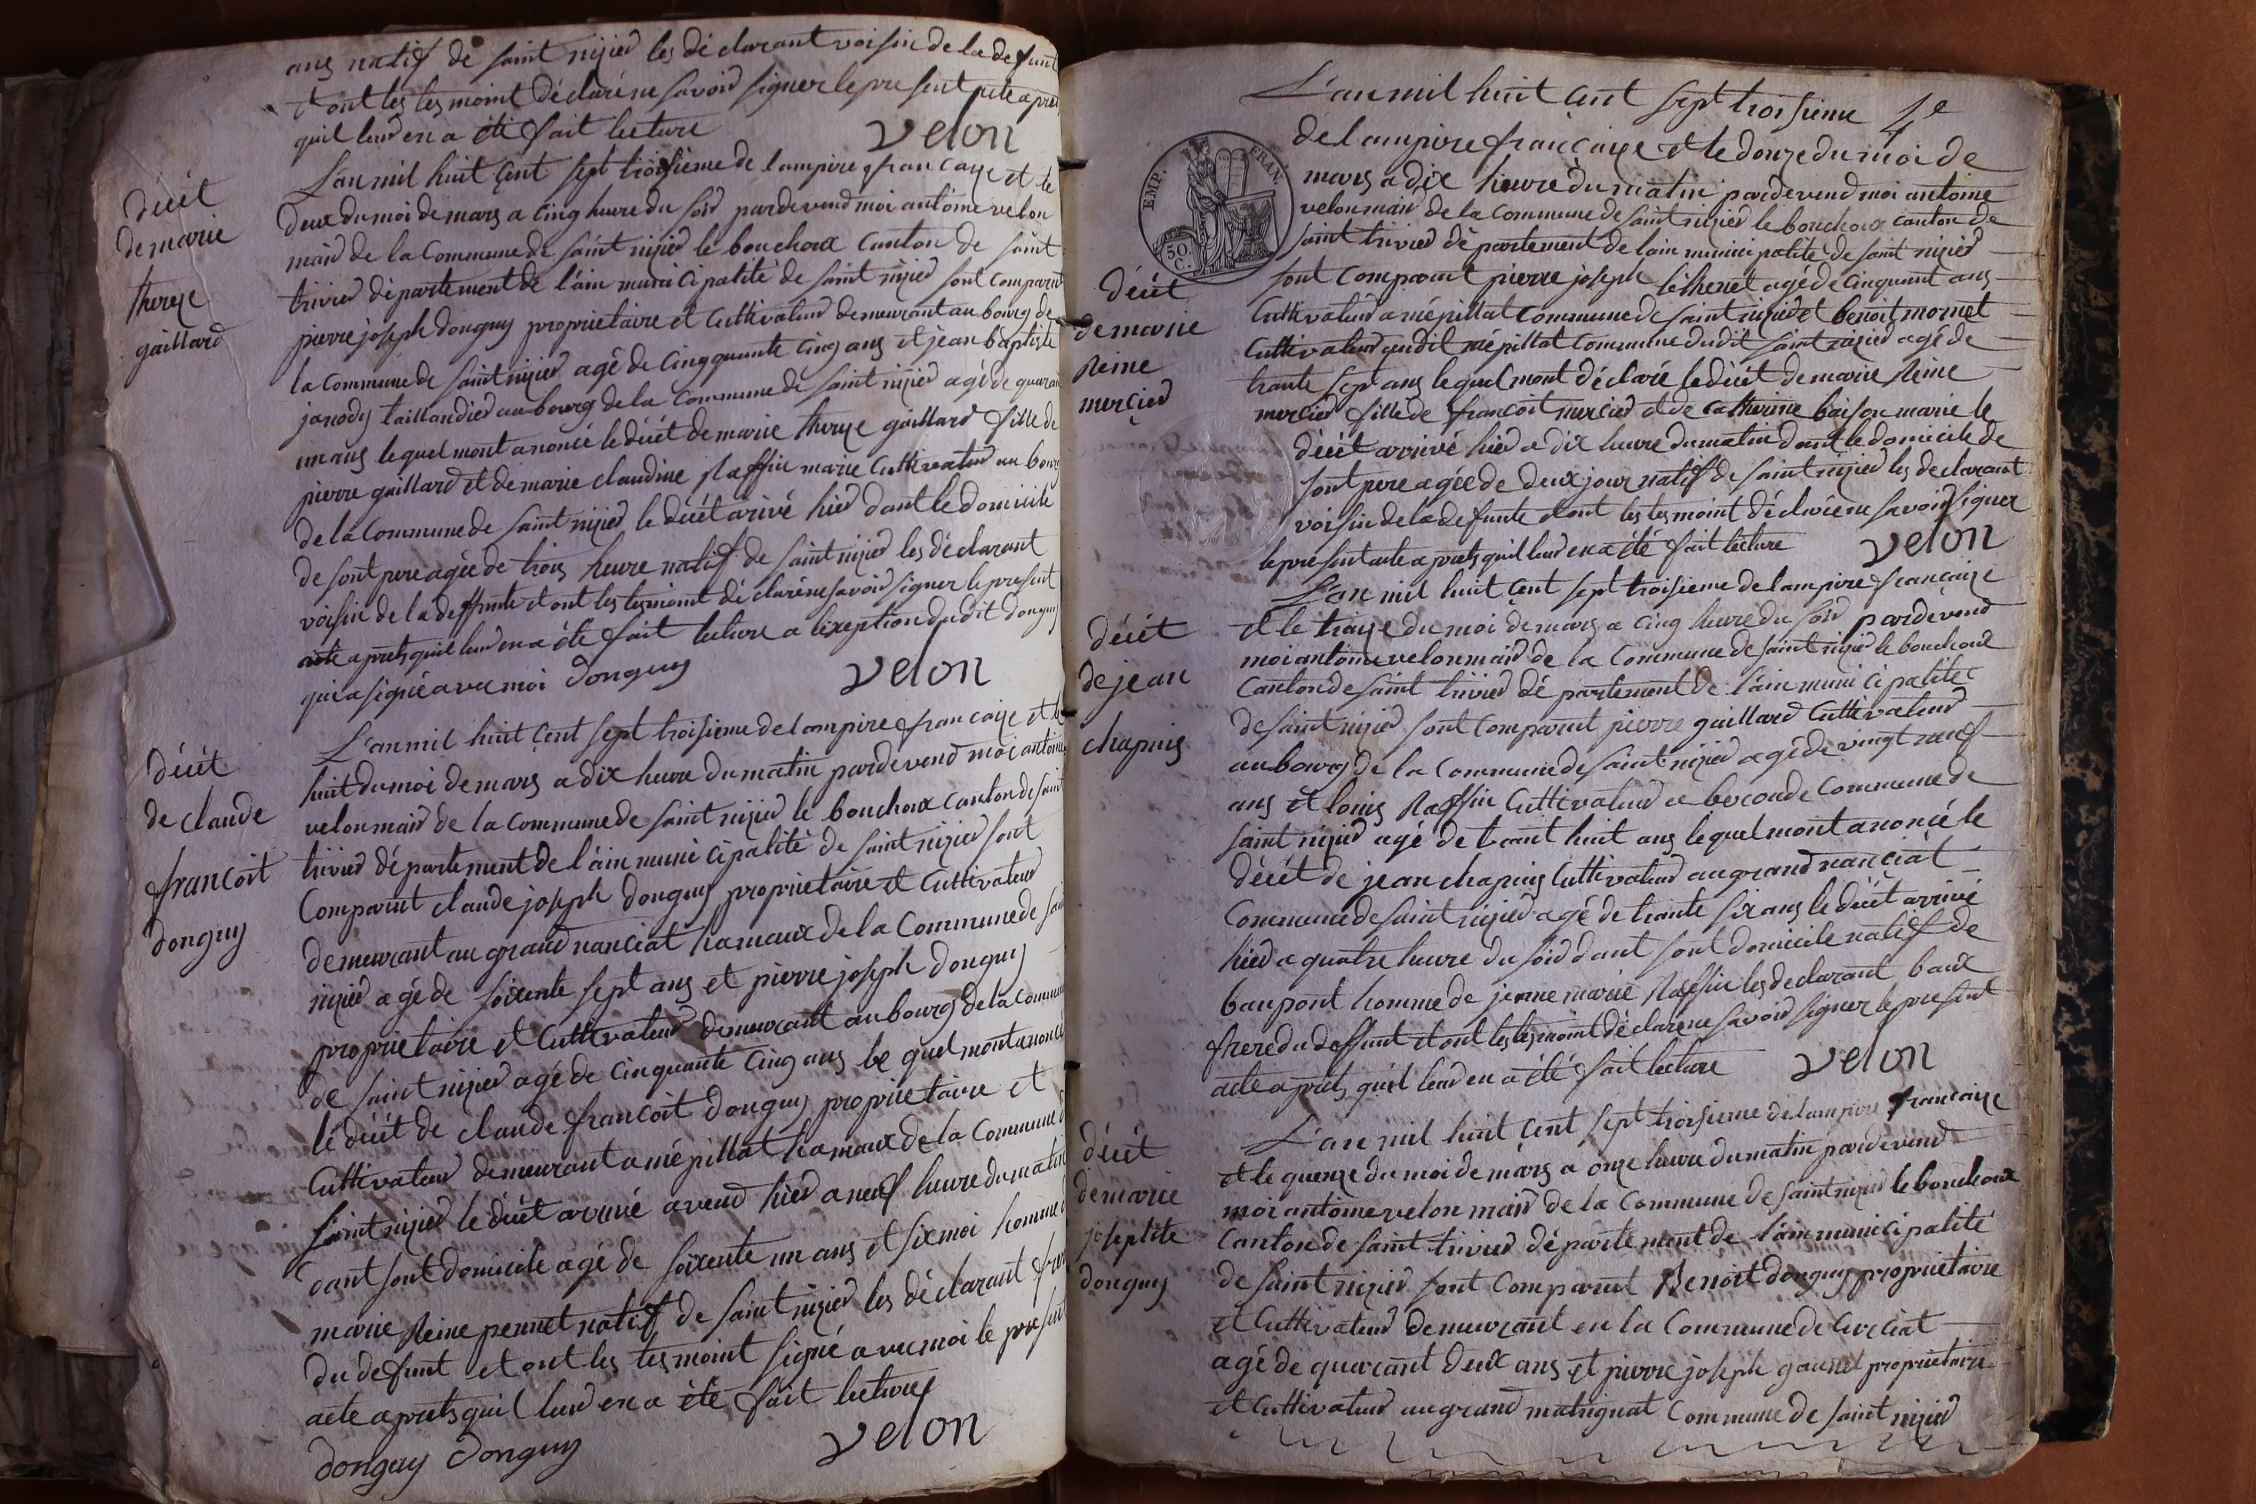 ans natif de saint nizier les déclarant voisin de la defunt
et ont les tesmoint déclaré ne savoir signer le present acte apres
quil leur en a été fait lecture
velon
décét
de marie
thereze
gaillard
L'an mil huit cent sept troisieme de lampire francaize et le
deux du moi de mars a cinq heure du soir pardevend moi antoine velon
mair de la Commune de saint nizier le bouchoux canton de saint
trivier département de l'ain municipalité de saint nizier sont comparut
pierre joseph donguy proprietaire et Cultivateur demeurant au bourg de
la commune de saint nizier agé de cinqquante cinq ans et jean baptiste
janody taillandier au bourg de la commune de saint nizier agé de quarant
un ans lequel mont anoncé le décét de marie thereze gaillard fille de
pierre gaillard et de marie claudine Raffin marie Cultivateur au bourg
de la Commune de saint nizier le décét arivé hier dant le domicile
de sont pere agée de trois heure natif de saint nizier les déclarant
voisin de la deffunte et ont les tesmoint déclaré ne savoir signer le present
acte aprets quil leur en a été fait lecture a lexeption dudit donguy
qui a signé avec moi donguy
velon
décét
de claude
francoit
donguy
L'an mil huit cent sept troisieme de lampire francaize et le
huit du moi de mars a dix heure du matin pardevend moi antoine
velon mair de la commune de saint nizier le bouchoux canton de saint
trivier département de l'ain municipalité de saint nizier sont
Comparut claude joseph donguy proprietaire et Cultivateur
demeurant au grand nanciat hamaux de la Commune de saint
nizier agé de soixente sept ans et pierre joseph donguy
proprietaire et Cultivateur demeurant au bourg de la commune
de saint nizier agé de cinquante cinq ans le quel mont anoncé
le décét de claude francoit donguy proprietaire et
Cultivateur demeurant a mépillat hamaux de la Commune de
saint nizier le décét arrivé avend hier a neuf heure du matin
dant sont domicile agé de soixente un ans et six moi homme de
marie Reine pennet natif de saint nizier les déclarant frere
du defunt et ont les tesmoint signé avec moi le present
acte aprets quil leur en a été fait lecture
donguy donguy
velon
4e
EMP. FRAN.
50 C.
L'an mil huit cent sept troisieme
de lampire francaize et le douze du moi de
mars a dix heure du matin pardevend moi antoine
velon mair de la Commune de saint nizier le bouchoux canton de
saint trivier département de lain municipalité de saint nizier
décét
de marie
Reine
mercier
sont comparut pierre joseph léthenet agé de cinquant ans
Cultivateur a mépillat commune de saint nizier et benoit mornet
Cultivateur audit mépillat commune dudit saint nizier agé de
trante sept ans lequel mont déclaré le décét de marie Reine
mercier fille de francoit mercier et de catherine baison marie le
décét arrivé hier a dix heure du matin dant le domicile de
sont pere agée de deux jour natif de saint nizier les declarant
voisin de la defunte et ont les tesmoint déclaré ne savoir signer
le present acte aprets quil leur en a été fait lecture
velon
décét
de jean
chapuis
L'an mil huit cent sept troisieme de lampire francaize
et le traize du moi de mars a cinq heure du soir pardevend
moi antoine velon mair de la Commune de saint nizier le bouchoux
Canton de saint trivier département de l'ain municipalité
de saint nizier sont comparut pierre gaillard Cultivateur
au bourg de la Commune de saint nizier agé de vingt neuf
ans et louis Raffin Cultivateur a becoude Commune de
saint nizier agé de trant huit ans lequel mont anoncé le
décét de jean chapuis Cultivateur au grand nanciat
Commune de saint nizier agé de trante six ans le décét arrivé
hier a quatre heure du soir dant sont domicile natif de
baupont homme de jenne marie Raffin les declarant baux
frere du deffunt et ont les tesmoint déclaré ne savoir signer le present
acte aprets quil leur en a été fait lecture
velon
décét
de marie
josephte
donguy
L'an mil huit cent sept troisieme de lampire francaize
et le quenze du moi de mars a onze heure du matin pardevend
moi antoine velon mair de la Commune de saint nizier le bouchoux
Canton de saint trivier département de l'ain municipalité
de saint nizier sont Comparut Benoit donguy proprietaire
et Cultivateur demeurant en la Commune de Curciat
agé de quarant deux ans et pierre joseph gaunet proprietaire
et Cultivateur au grand matrignat Commune de saint nizier